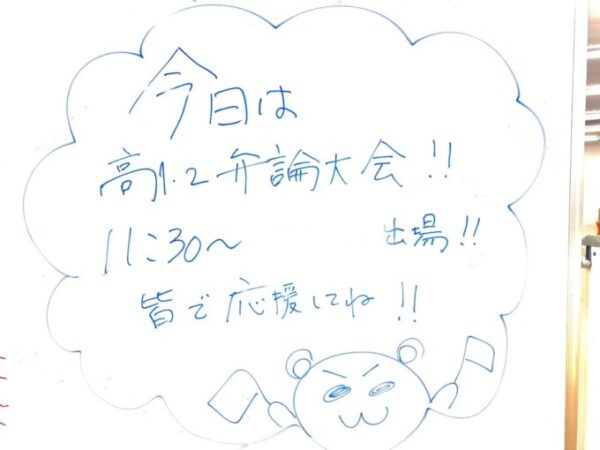 今日は
高1.2弁論大会!!
11:30〜 出場!!
皆で応援してね!!